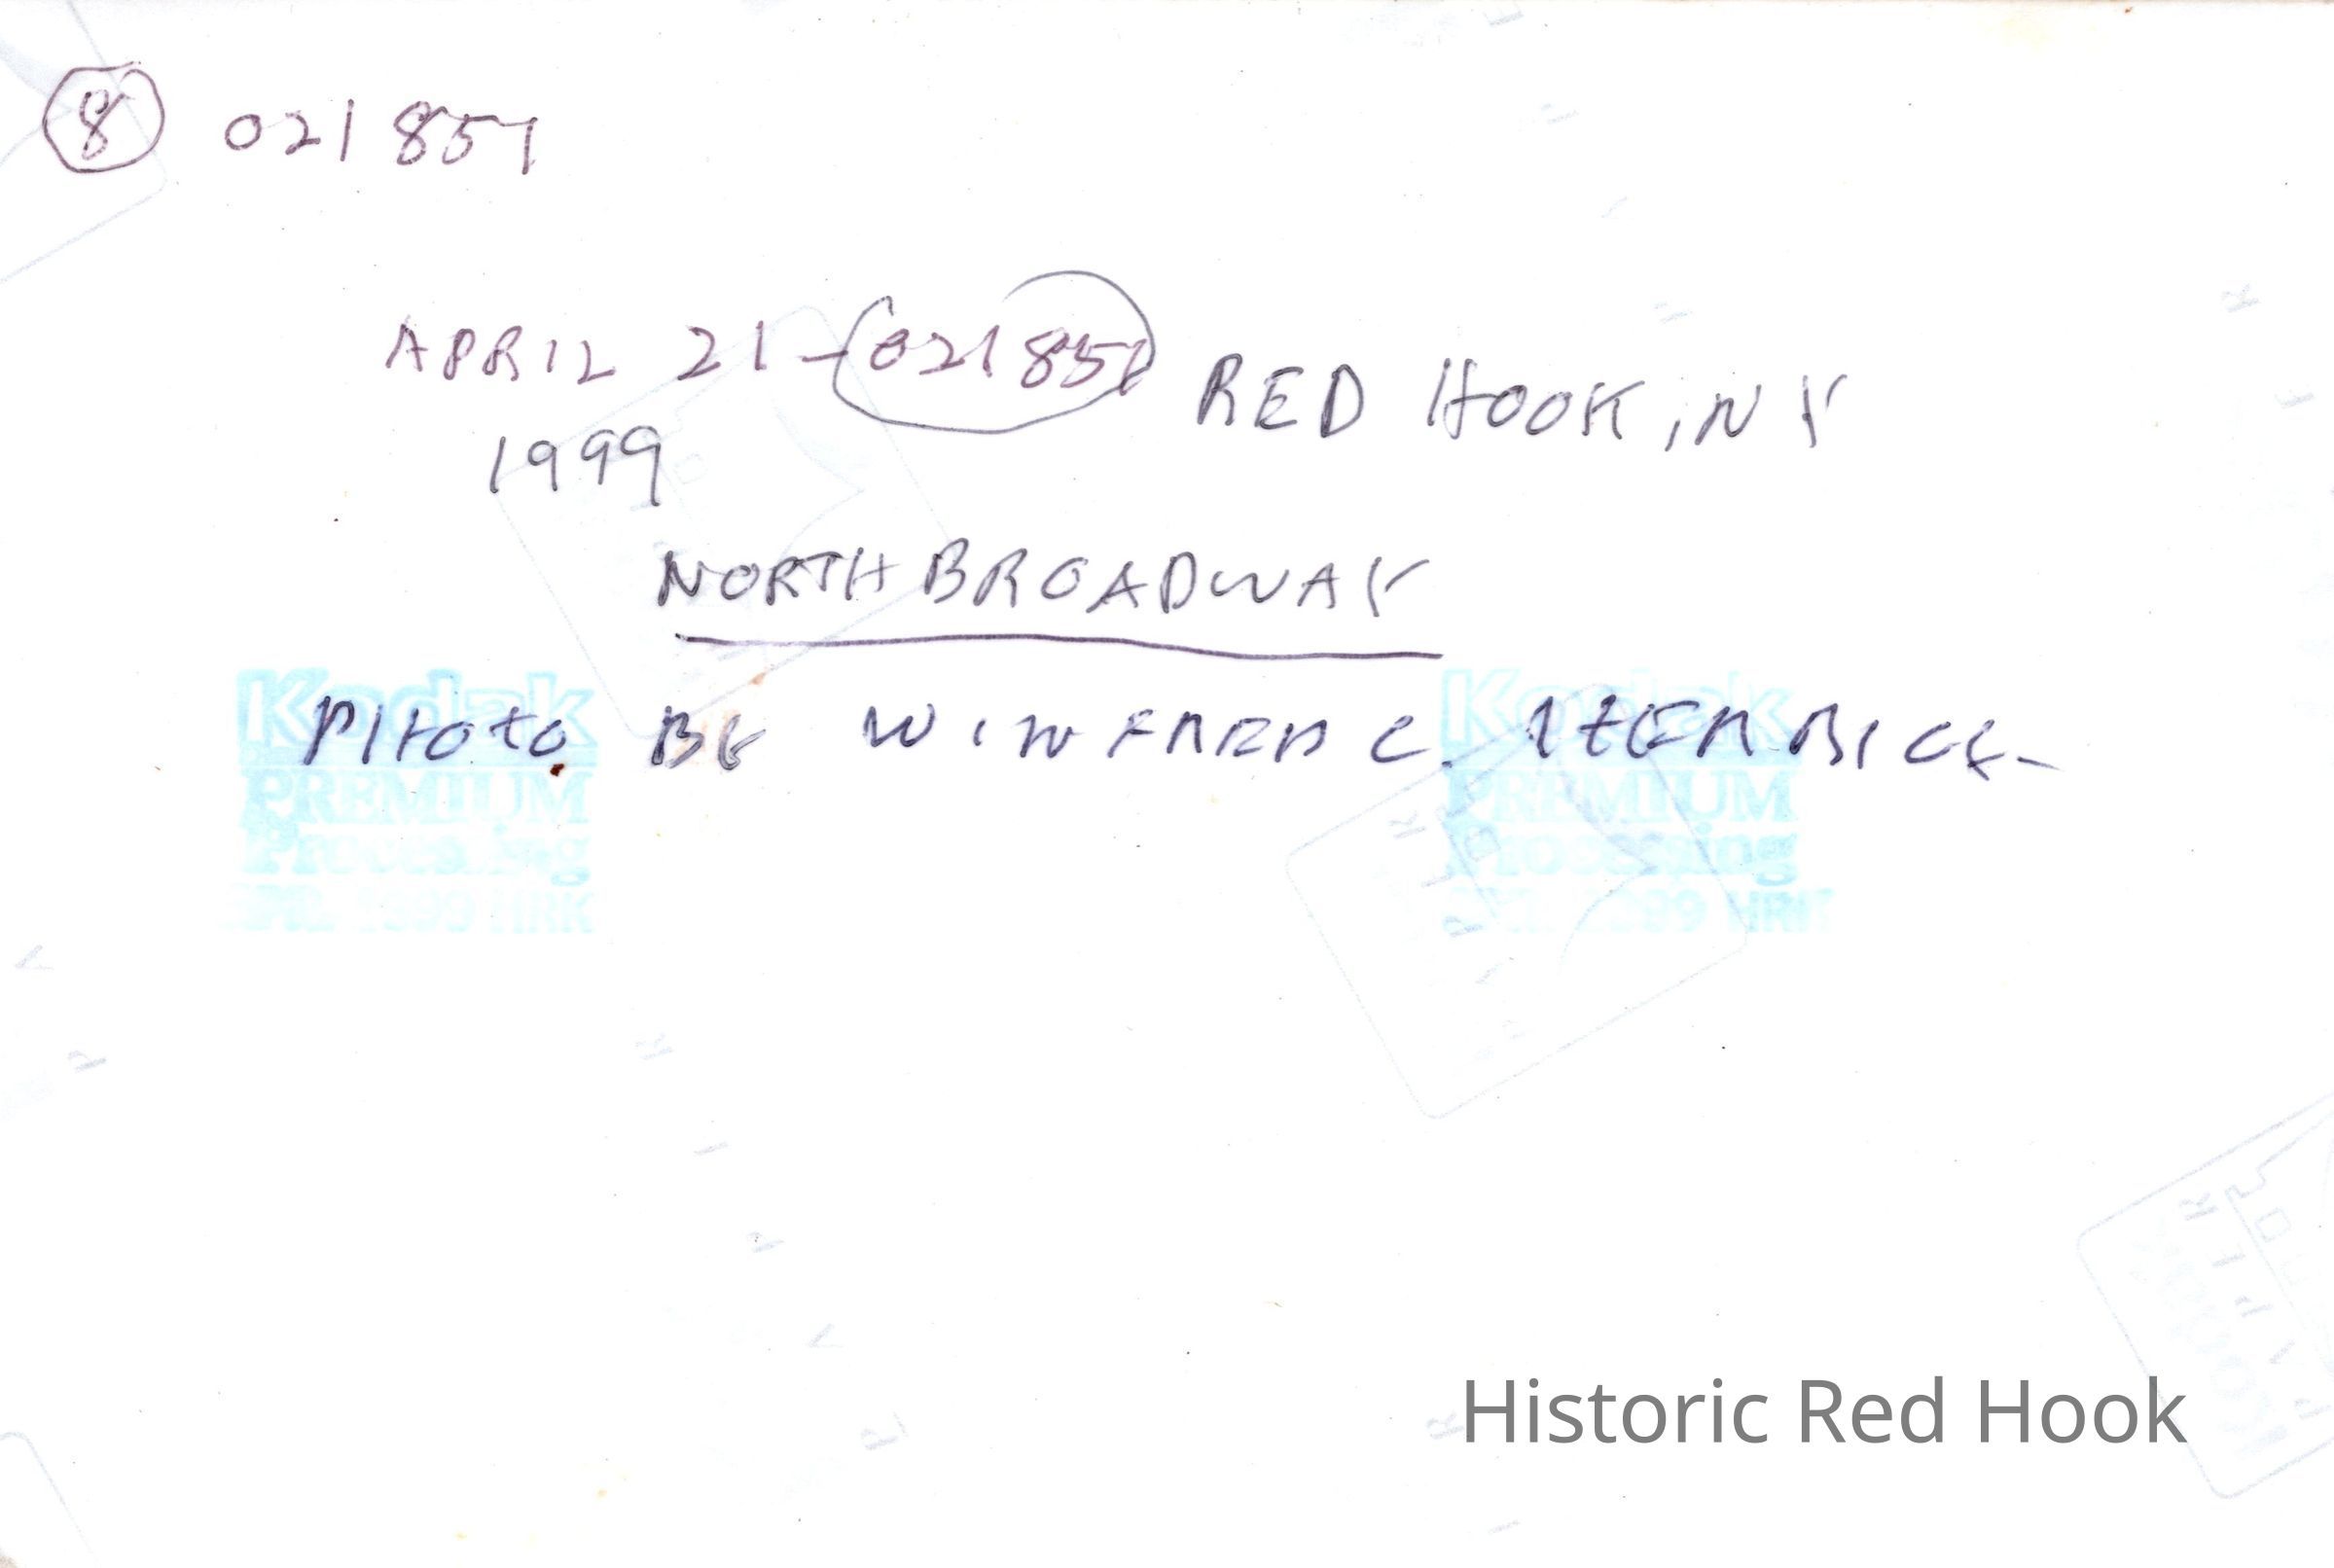 8 021851
APRIL 21-021851 RED HOOK, NY
1999
NORTH BROADWAY
PHOTO BY WINFRED C.
Kodak Kodak
PREMIUM PREMIUM
Processing Processing
1999 HRK
Historic Red Hook